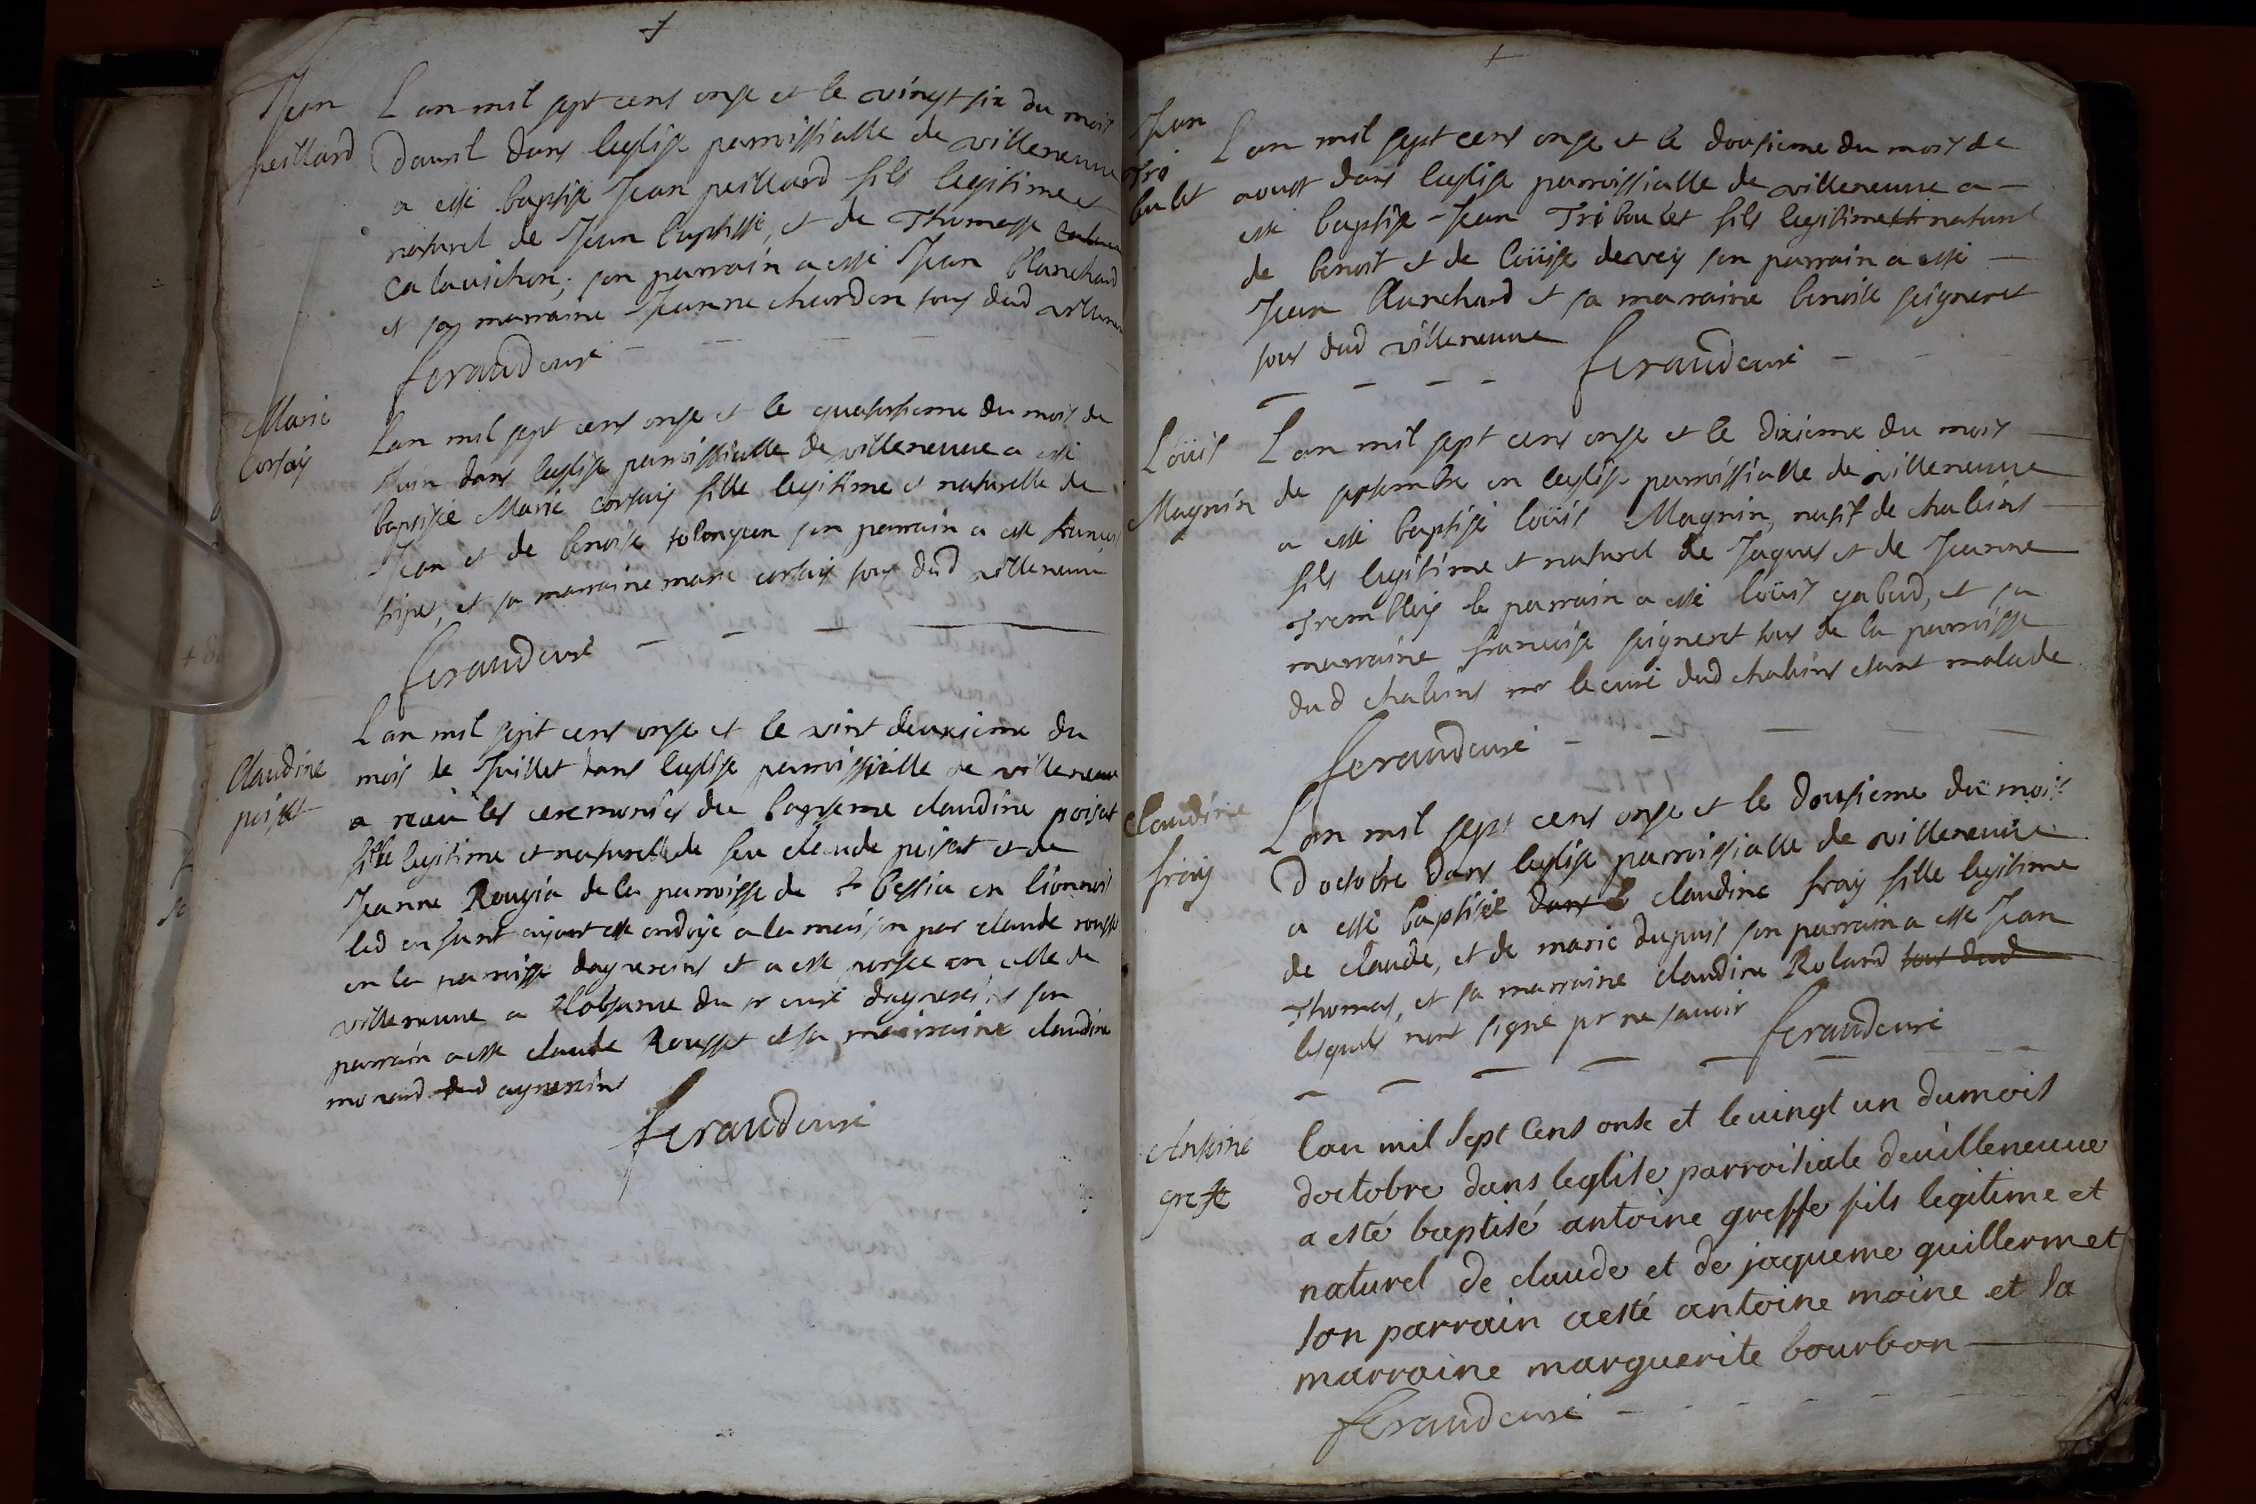 +
Jean
peillard
Lan mil sept cens onse et le vingt six du mois
davril dans leglise parroissialle de villeneuve
a esté baptisé Jean peillard fils legitime et
naturel de Jean baptiste, et de Thomasse
calauichon; son parrain a esté Jean blanchard
et sa marraine Jeanne chardon tous dud villeneuve
feraud curé
Marie
Corsay
Lan mil sept cens onse et le quatorsieme du mois de
Juin dans leglise parroissialle de villeneuve a esté
baptisée Marie corsay fille legitime et naturelle de
Jean et de benoise tolonjeon son parrain a esté françois
tripet, et sa marraine marie corsay tous dud villeneuve
feraud curé
Claudine
poisat
Lan mil sept cens onse et le vint deuxieme du
mois de Juillet dans leglise parroissialle de villeneuve
a receu les ceremonies du bapteme claudine poisat
fille legitime et naturelle de feu claude poisat et de
Jeanne Rougia de la parroisse de st bessia en lionnois
led enfant ayant esté ondoyé a la maison par claude rousset
en la parroisse dagnereins et a esté portée en celle de
villeneuve a labsance du sr curé dagnereins son
parrain a esté claude Rousset et sa marraine claudine
monard dud agnereins
feraud curé
+
Jean
Tri
bulet
Lan mil sept cens onse et le dousieme du mois de
aoust dans leglise parroissialle de villeneuve a
esté baptisé Jean Triboulet fils legitime et naturel
de benoit et de loüise devey son parrain a esté
Jean blanchard et sa maraine benoite seigneret
tous dud villeneuve feraud curé
Loüis
Magnin
Lan mil sept cens onse et le dixieme du mois
de septembre en leglise parroissialle de villeneuve
a esté baptisé loüis Magnin, natif de chaleins
fils legitime et naturel de Jaques et de Jeanne
Trembley le parrain a esté loüis gabud, et sa
marraine françoise seigneret tous de la parroisse
dud chaleins mr le curé dud chaleins etant malade
feraud curé
Claudine
fray
Lan mil sept cens onse et le dousieme du mois
doctobre dans leglise parroissialle de villeneuve
a esté baptisée dans l claudine fray fille legitime
de claude, et de marie dupuis son parrain a esté Jean
Thomas, et sa marraine claudine Roland tous dud
lesquels nont signé pr ne savoir feraud curé
Antoine
greffe
lan mil sept cens onse et le vingt un du mois
doctobre dans leglise parroisiale de villeneuve
a esté baptisé antoine greffe fils legitime et
naturel de claude et de jaqueme guillermet
son parrain a esté antoine moine et sa
marraine marguerite bourbon
feraud curé